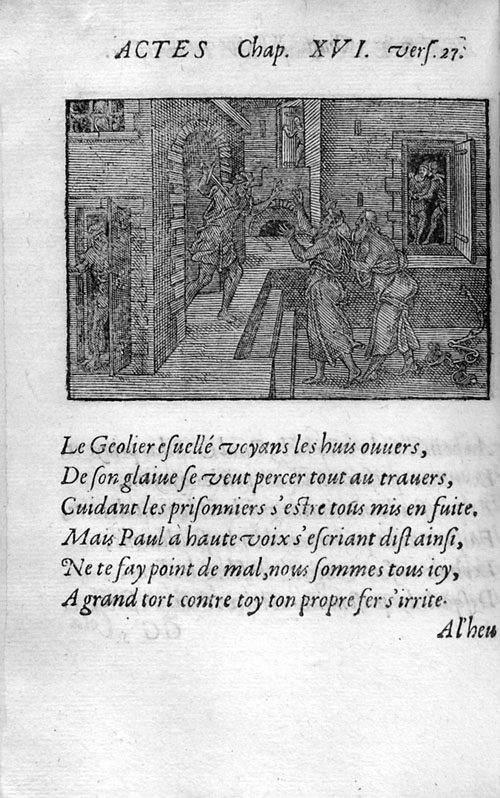 ACTES Chap. XVI. verſ. 27.
Le Geolier eſuellé voyans les huis ouuers,
De ſon glaiue ſe veut percer tout au trauers,
Cuidant les priſonniers s'eſtre tous mis en fuite.
Mais Paul à haute voix s'eſcriant diſt ainſi,
Ne te fay point de mal, nous ſommes tous icy,
A grand tort contre toy ton propre fer s'irrite.
A l'heu